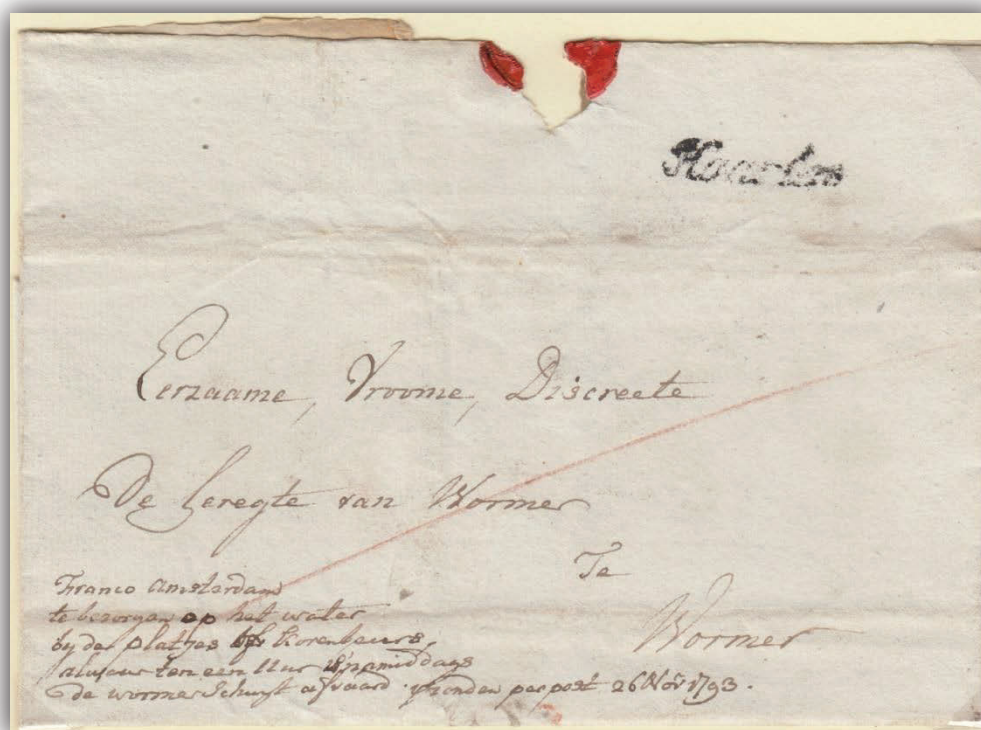 Haarlem
Eerzaame, Vroome, Discreete
De Geregte van Wormer
Te
Wormer
Franco Amsterdam
te bezorgen op het water
by de platjes Korenbeurs,
ten een Uur namiddags
de wormer Schuyt afvaard. gezonden per post 26 Nov 1793.